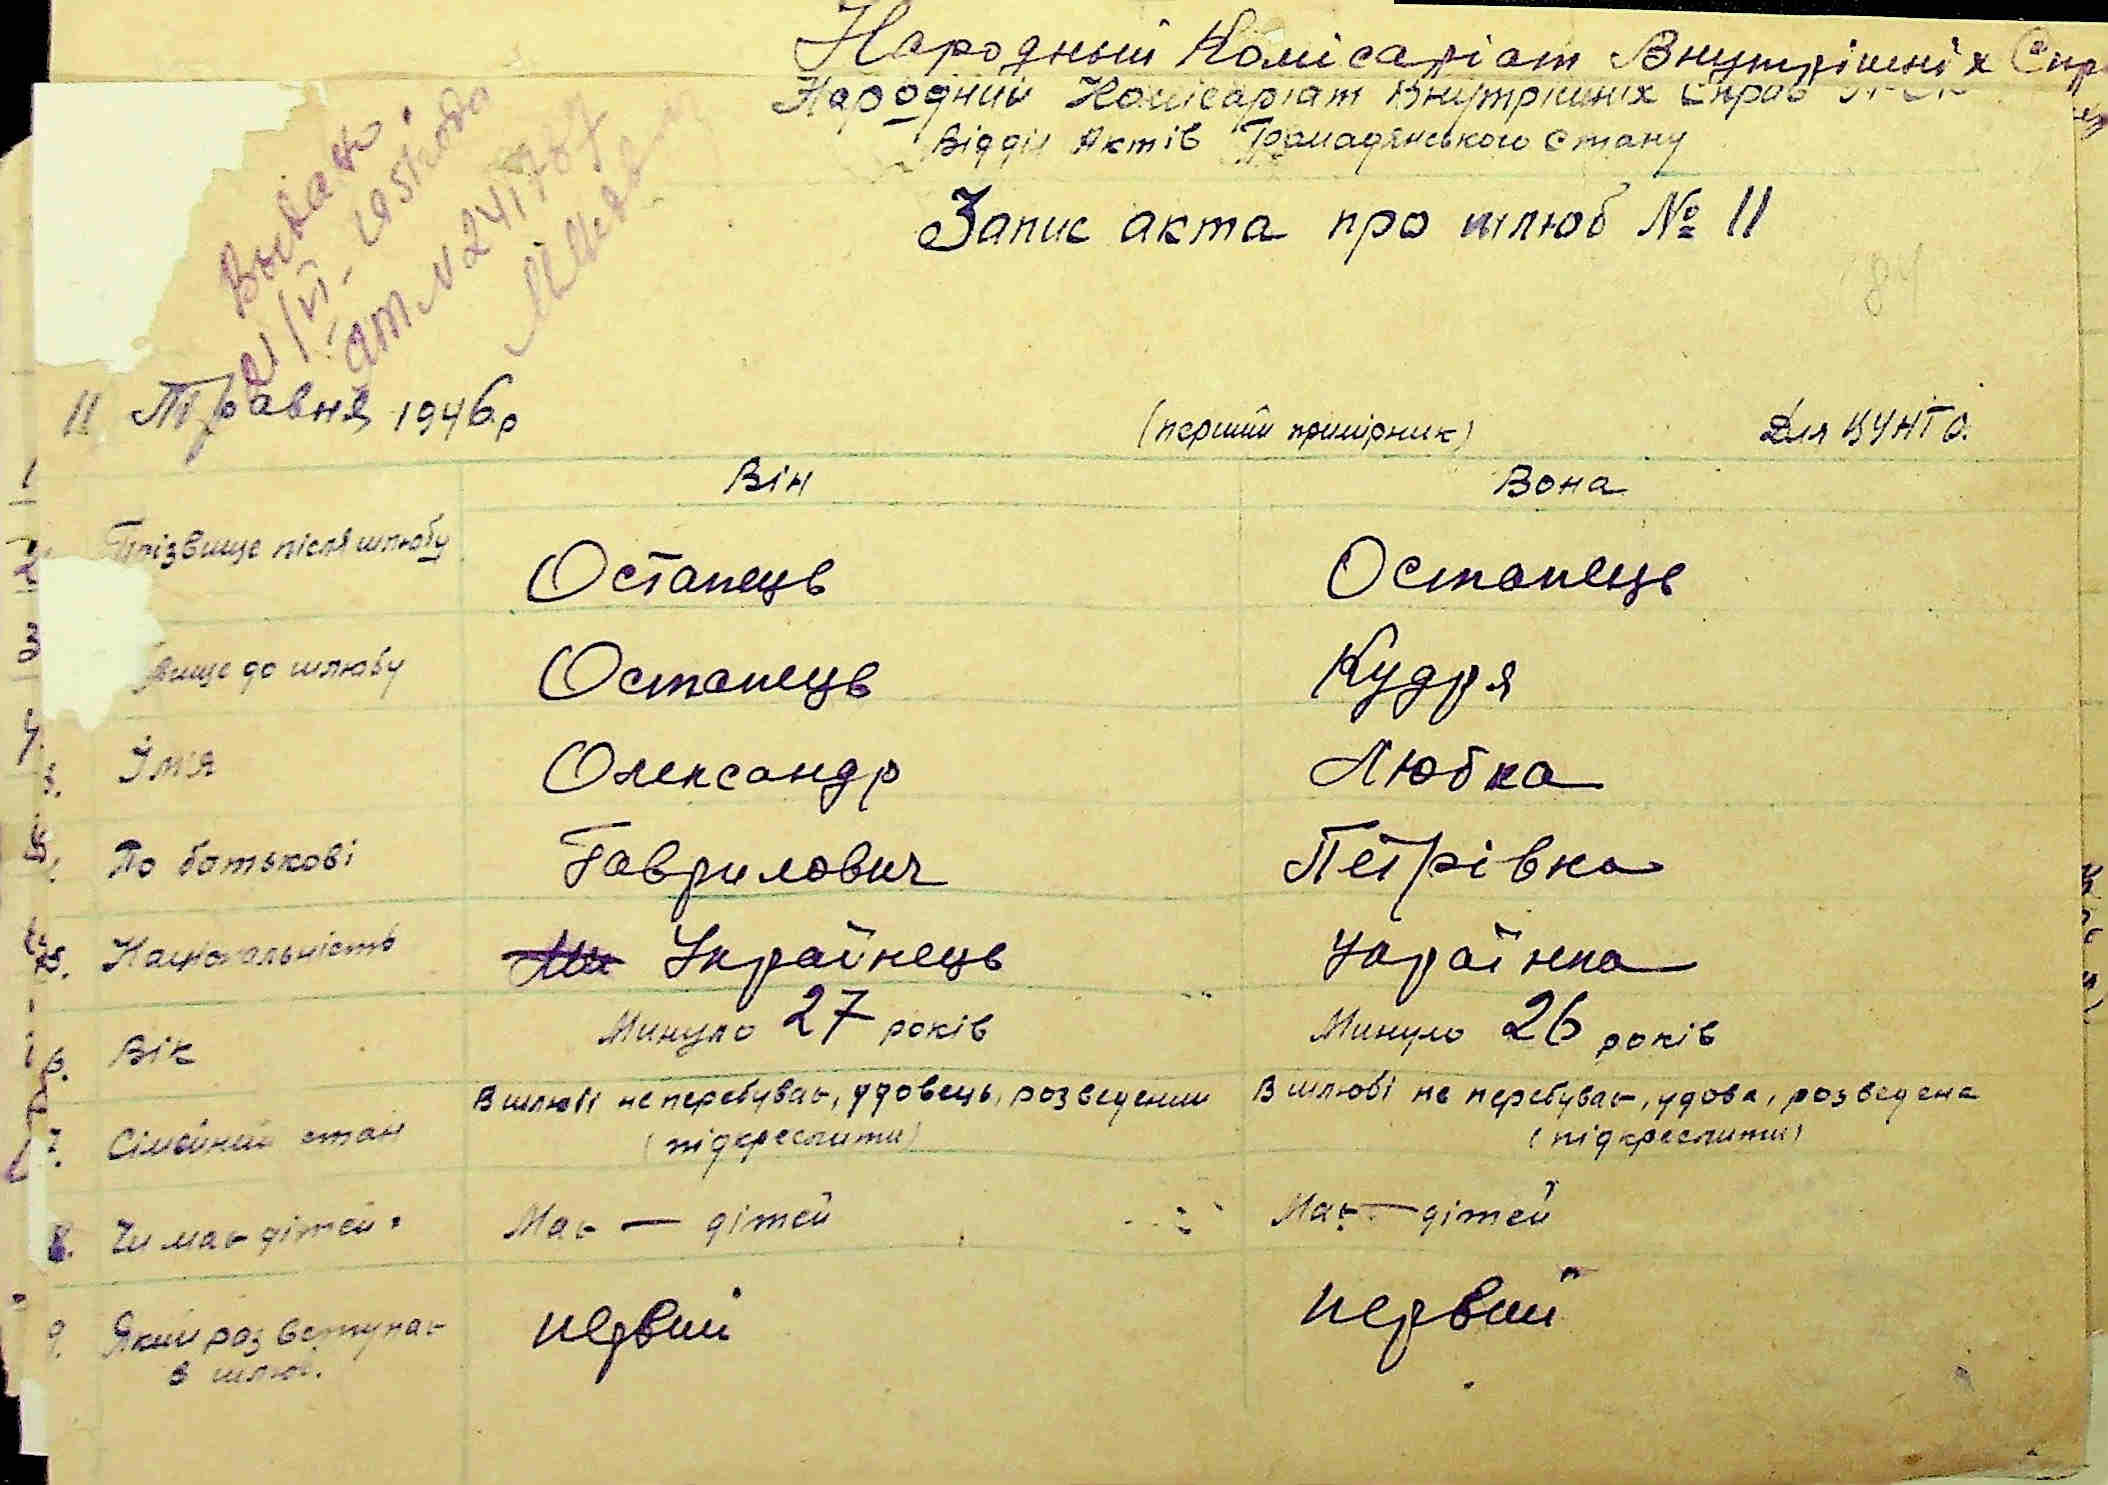 Народный Комісаріат Внутрішніх Спр
Народний Комісаріат Внутрішніх Справ
Відділ Актів Громадянського Стану
Запис акта про шлюб № 11
84
11 Травня 1946р
(перший примірник)
Для ЦУНГО.
Він Вона
Прізвище після шлюбу Остапець Остапець
вище до шлюбу Остапець Кудря
3. Ім'я Олександр Любка
По батькові Гаврилович Петрівна
5. Національність Українець Українка
6. Вік Минуло 27 років Минуло 26 років
7. Сімейний стан В шлюбі не перебуває, удовець, розведений В шлюбі не перебуває, удова, розведена
(підкреслити) (підкреслити)
8. Чи має дітей. Має — дітей Має — дітей
9. Який раз вступає первий первий
в шлюб.